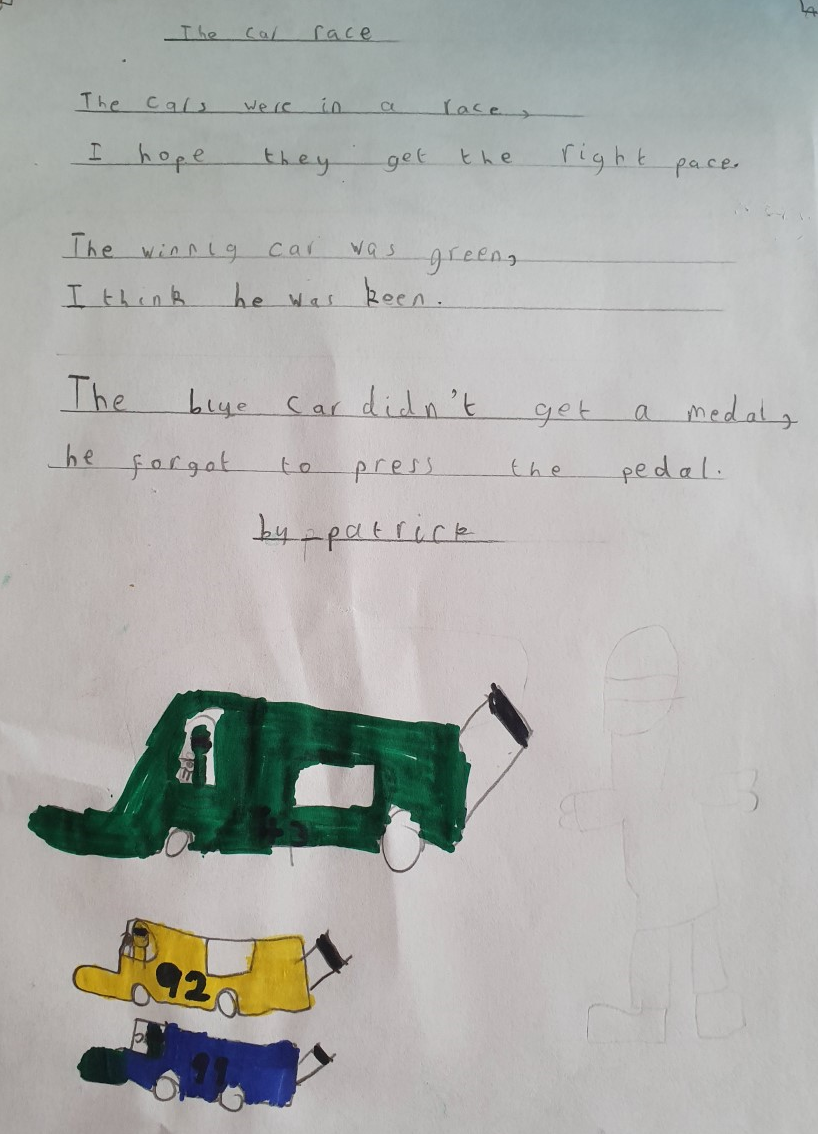 The car race
The cars were in a race,
I hope they get the right pace.
The winnig car was green,
I think he was keen.
The blue car didn't get a medal,
he forgot to press the pedal.
by - patrick
92
11